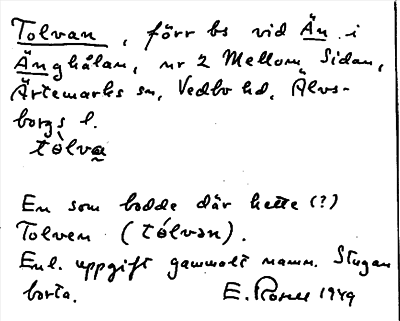 Tolvan, förr bs vid Än i
Änghålan, nr 2 Mellom Sidan,
Ärtemarks sn, Vedbo hd, Älvs-
borgs l.
tòlva
En som bodde där hette (?)
Tolven (tólvən).
Enl. uppgift gammalt namn. Stugan
borta. E. Rosell 1949